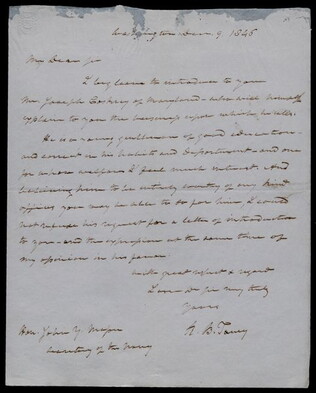 Washington Decr 9, 1845
My Dear Sir
I beg leave to introduce to you
Mr Joseph of Maryland - who will himself
explain to you the business upon which he calls.
He is a young gentleman of good education -
and correct in his habits and deportment - and one
for whose welfare I feel much interest. And
believing him to be entirely worthy of any kind
offices you may be able to do for him I could
not refuse his request for a letter of introduction
to you - and the expression at the same time of
my opinion in his favor.
With great respect & regard
I am Dr Sir very truly
Yours
R. B. Taney
Hon. John Y. Mason
Secretary of the Navy